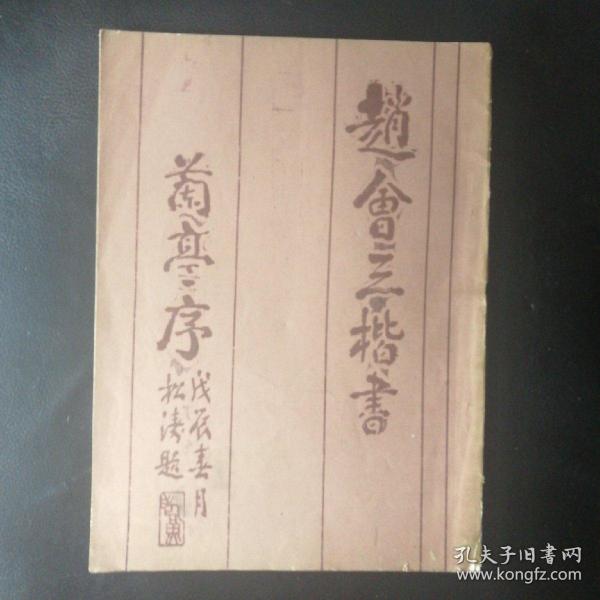 趙會三楷書
蘭亭序
戊辰春月
松濤題
孔夫子旧书网
www.kongfz.com